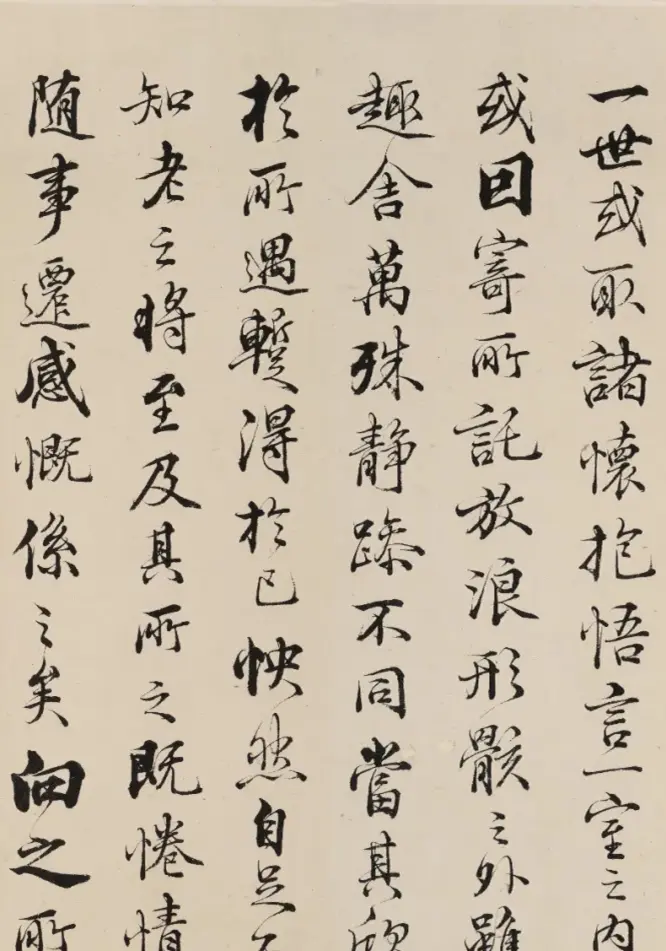 一世或取諸懷抱悟言一室之内
或因寄所託放浪形骸之外雖
趣舍萬殊静躁不同當其欣
於所遇蹔得於己怏然自足不
知老之將至及其所之既惓情
随事遷感慨係之矣向之所